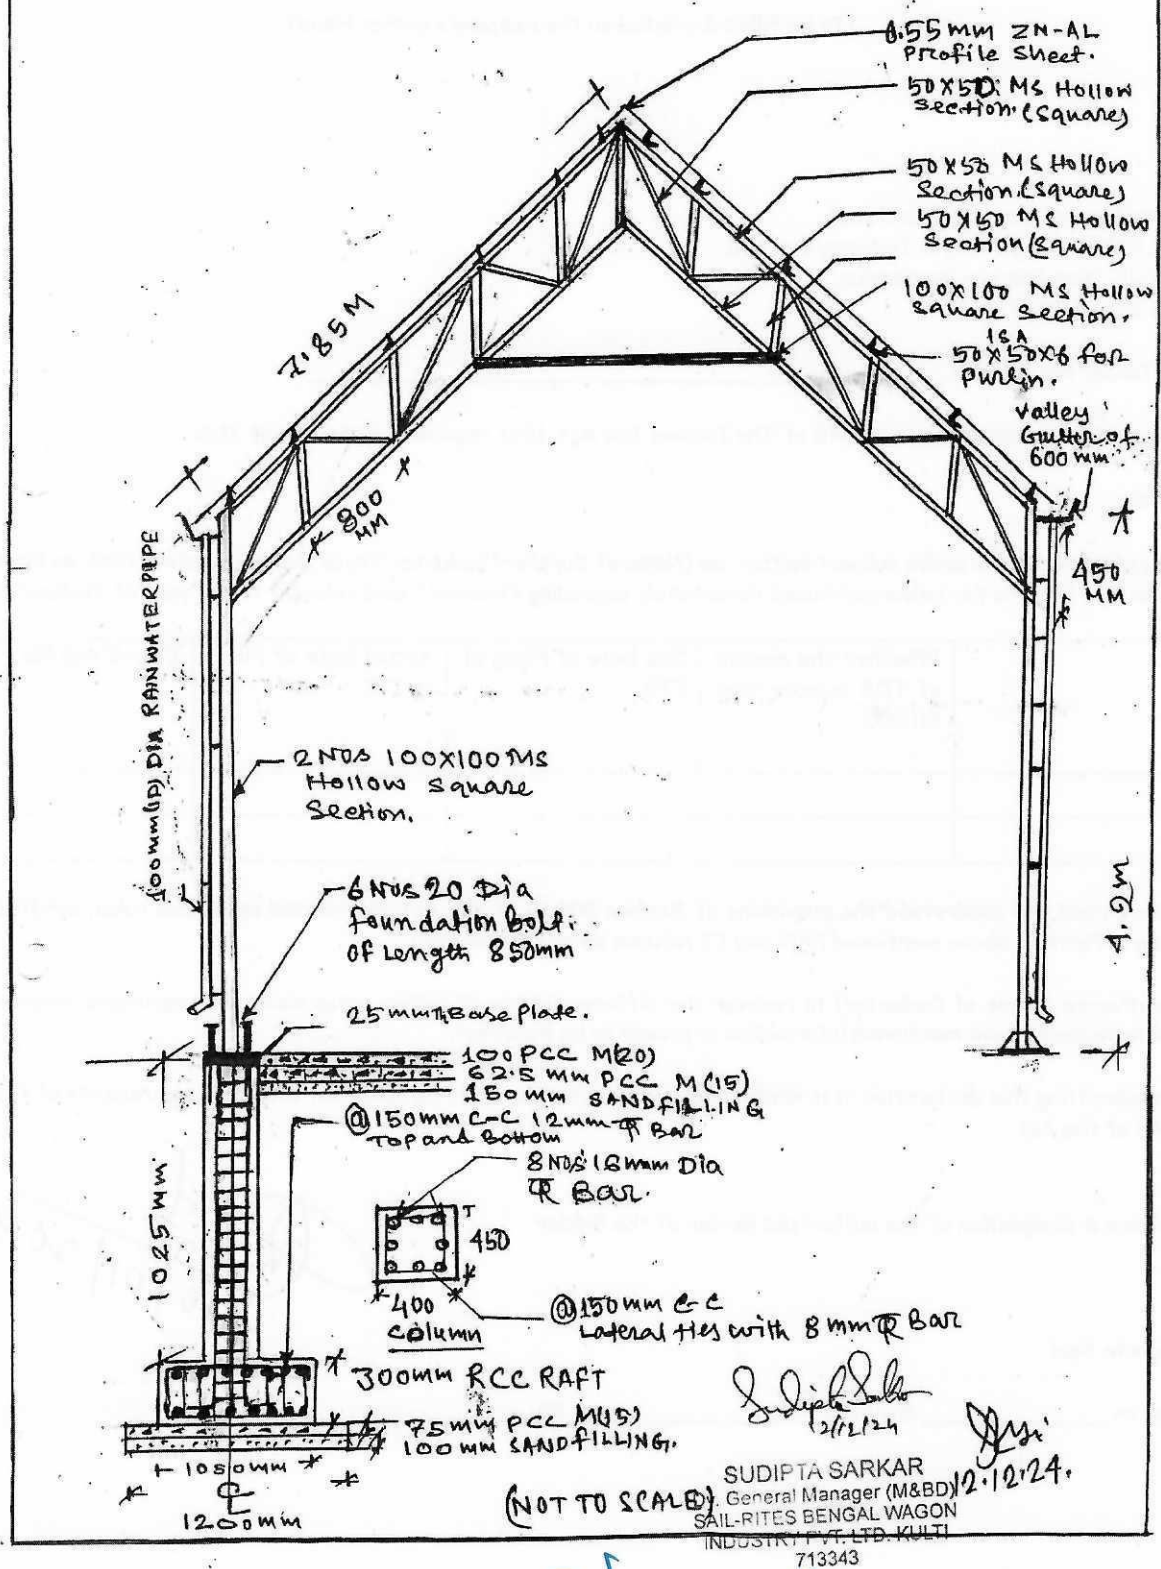 0.55 mm ZN-AL
Profile Sheet.
50X50: MS Hollow
Section. (Square)
50X50 MS Hollow
Section. (Square)
50X50 MS Hollow
Section (Square)
100X100 MS Hollow
Square Section.
ISA
50X50X6 for
Purlin.
Valley
Gutter of
600 mm
7.85M
800
MM
450
MM
100mm(ID) DIA RAINWATERPIPE
2 NOS 100X100 MS
Hollow Square
Section.
4.2m
6 NOS 20 Dia
foundation Bolt.
of Length 850mm
25mm Th Base Plate.
100 PCC M(20)
62.5 mm PCC M(15)
150 mm SANDFILLING
@150mm C-C 12mm TR Bar
Top and Bottom
8 NOS 16mm Dia
TR Bar.
1025 mm
450
400
Column
@150mm C-C
Lateral ties with 8mm TR Bar
300mm RCC RAFT
75mm PCC M(15)
100mm SANDFILLING.
1050mm
CL
1200mm
(NOT TO SCALE)
2/12/24
12.12.24.
SUDIPTA SARKAR
Dy. General Manager (M&BD)
SAIL-RITES BENGAL WAGON
INDUSTRY PVT. LTD. KULTI
713343